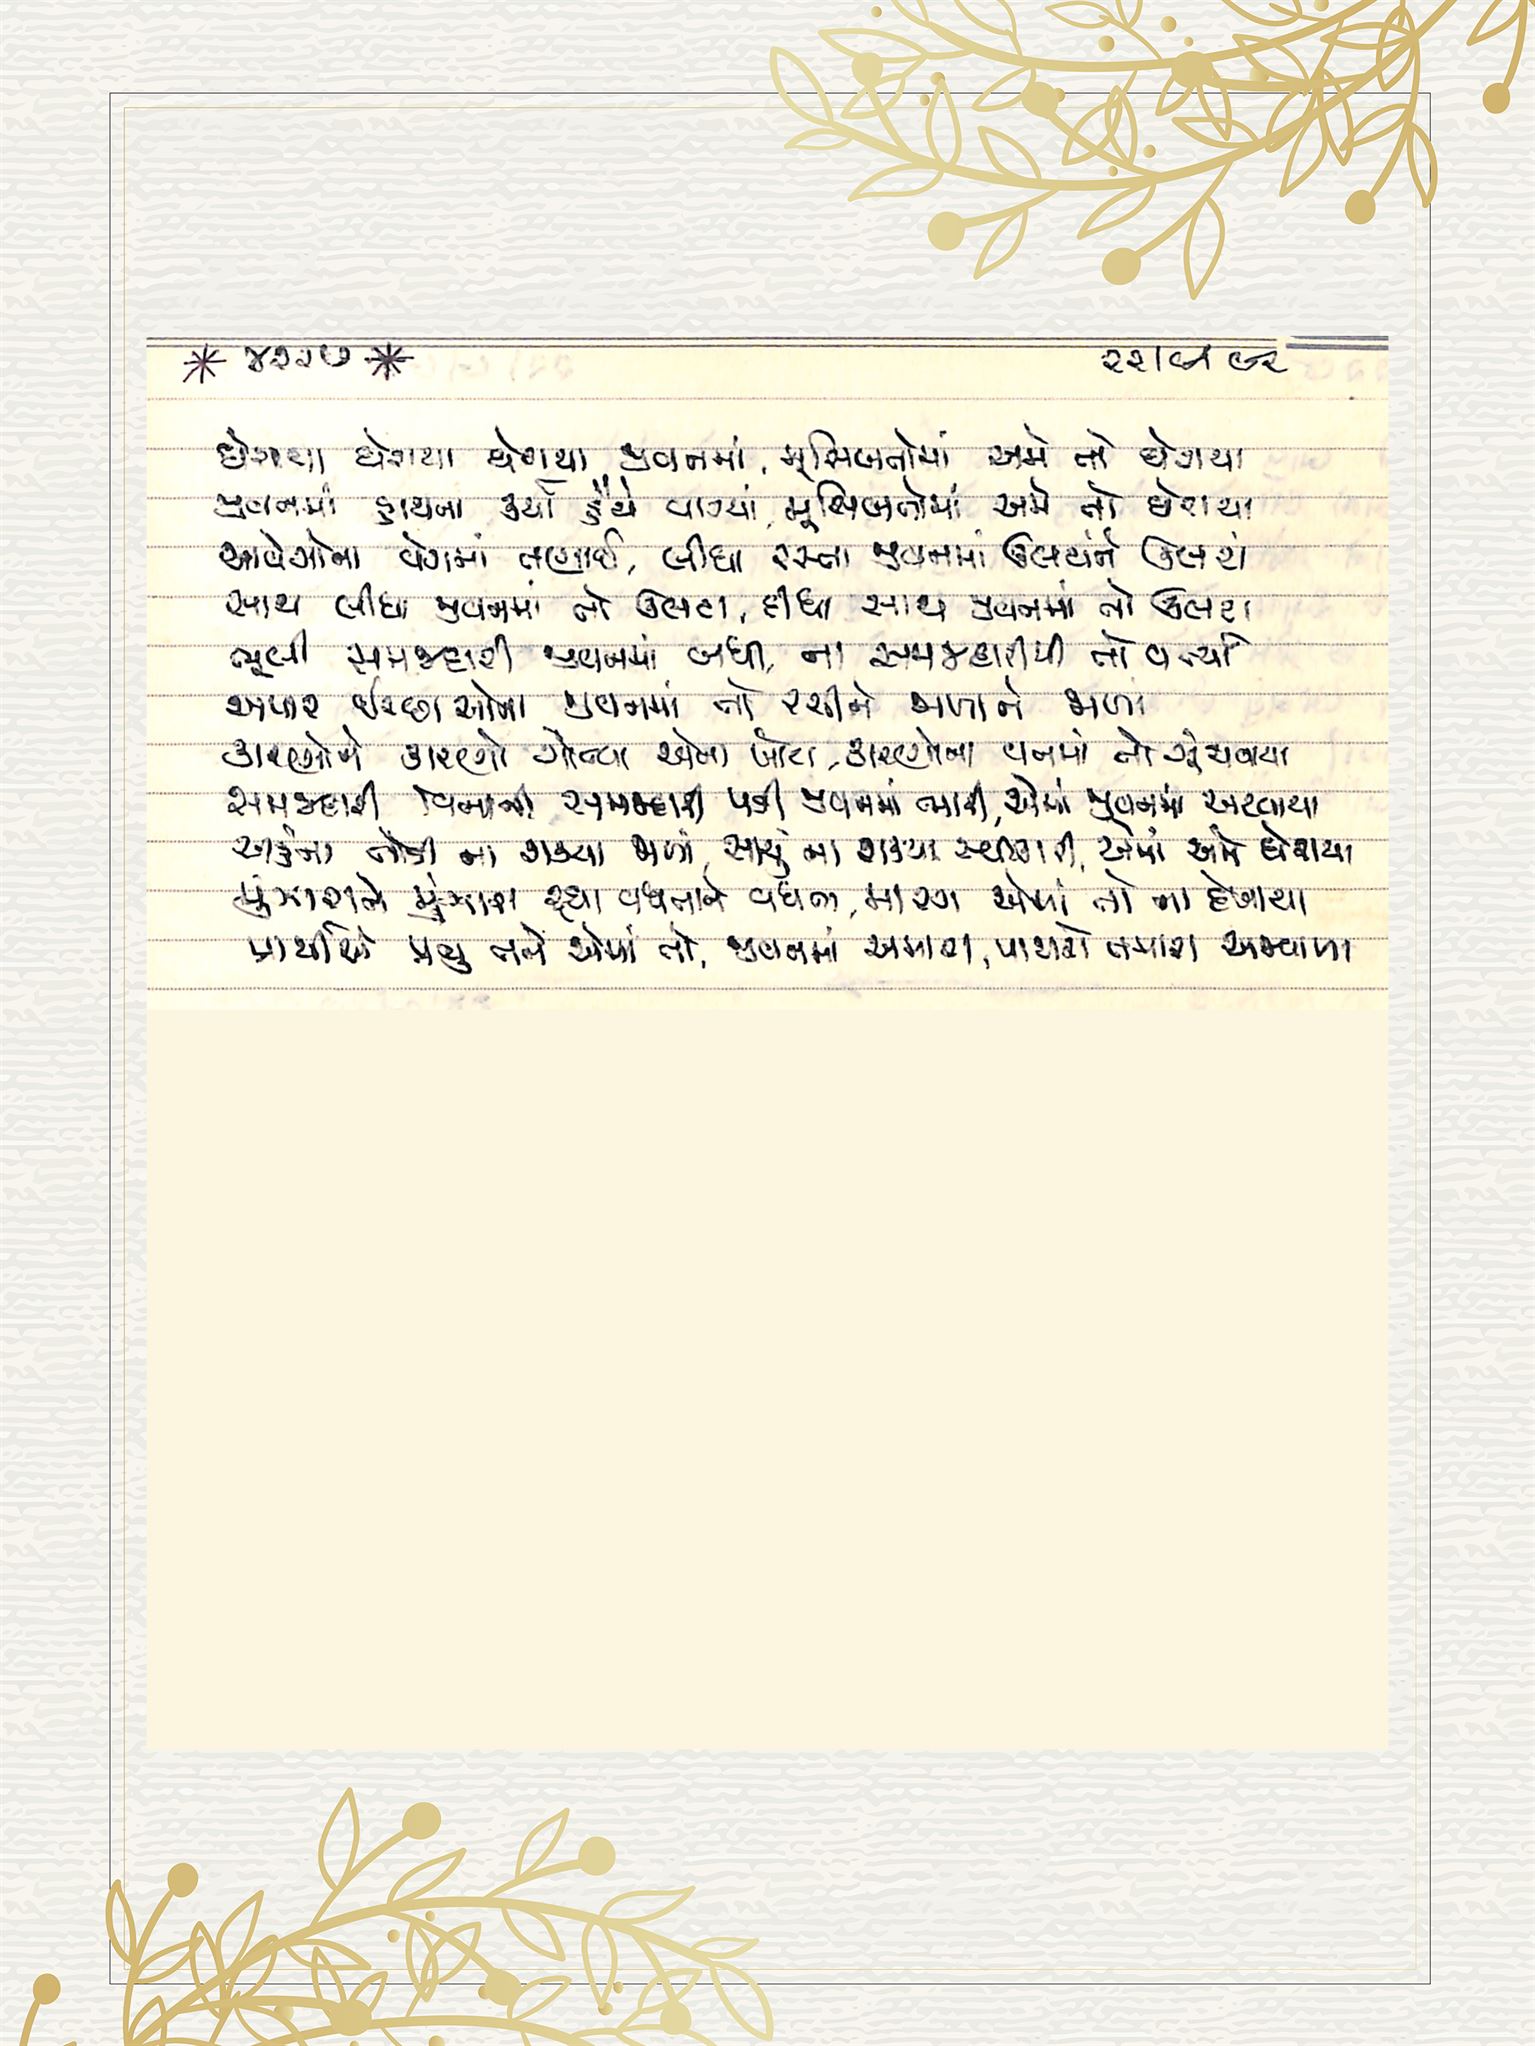 * ૪૨૨૭ *
ઘેરાયા ઘેરાયા ઘેરાયા જીવનમાં, મુસિબતોમાં અમે તો ઘેરાયા
જીવનમાં હાથના કર્યા હૈયે વાગ્યાં, મુસિબતોમાં અમે તો ઘેરાયા
આવેગોના વેગમાં તણાઈ, લીધા રસ્તા જીવનમાં ઉલટાને ઉલટાં
સાથ લીધા જીવનમાં તો ઉલટા, દીધા સાથ જીવનમાં તો ઉલટા
ભૂલી સમજદારી જીવનમાં બધી, ના સમજદારીથી તો વર્ત્યા
અપાર ઈચ્છાઓના જીવનમાં તો રચીને જાળાને જાળાં
કારણોને કારણો ગોત્યા એના ખોટા, કારણોના વનમાં તો ગૂંચવાયા
સમજદારી વિનાની સમજદારી પડી જીવનમાં ભારી, એમાં જીવનમાં અટવાયા
અહંના તોડી ના શક્યા જાળાં, સાચું ના શક્યા સ્વીકારી, એમાં અમે ઘેરાયા
મુંઝારાને મુંઝારા રહ્યા વધતાને વધતા, મારગ એમાં તો ના દેખાયા
પ્રાર્થીએ પ્રભુ તને એમાં તો, જીવનમાં અમારા, પાથરો તમારા અજવાળા